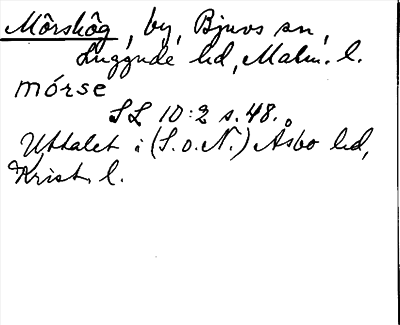 Mörshög, by, Bjuvs sn,
Luggude hd, Malm. l.
mórse
SL 10:2 s. 48.
Uttalet i (S.o.N.) Åsbo hd,
Krist. l.